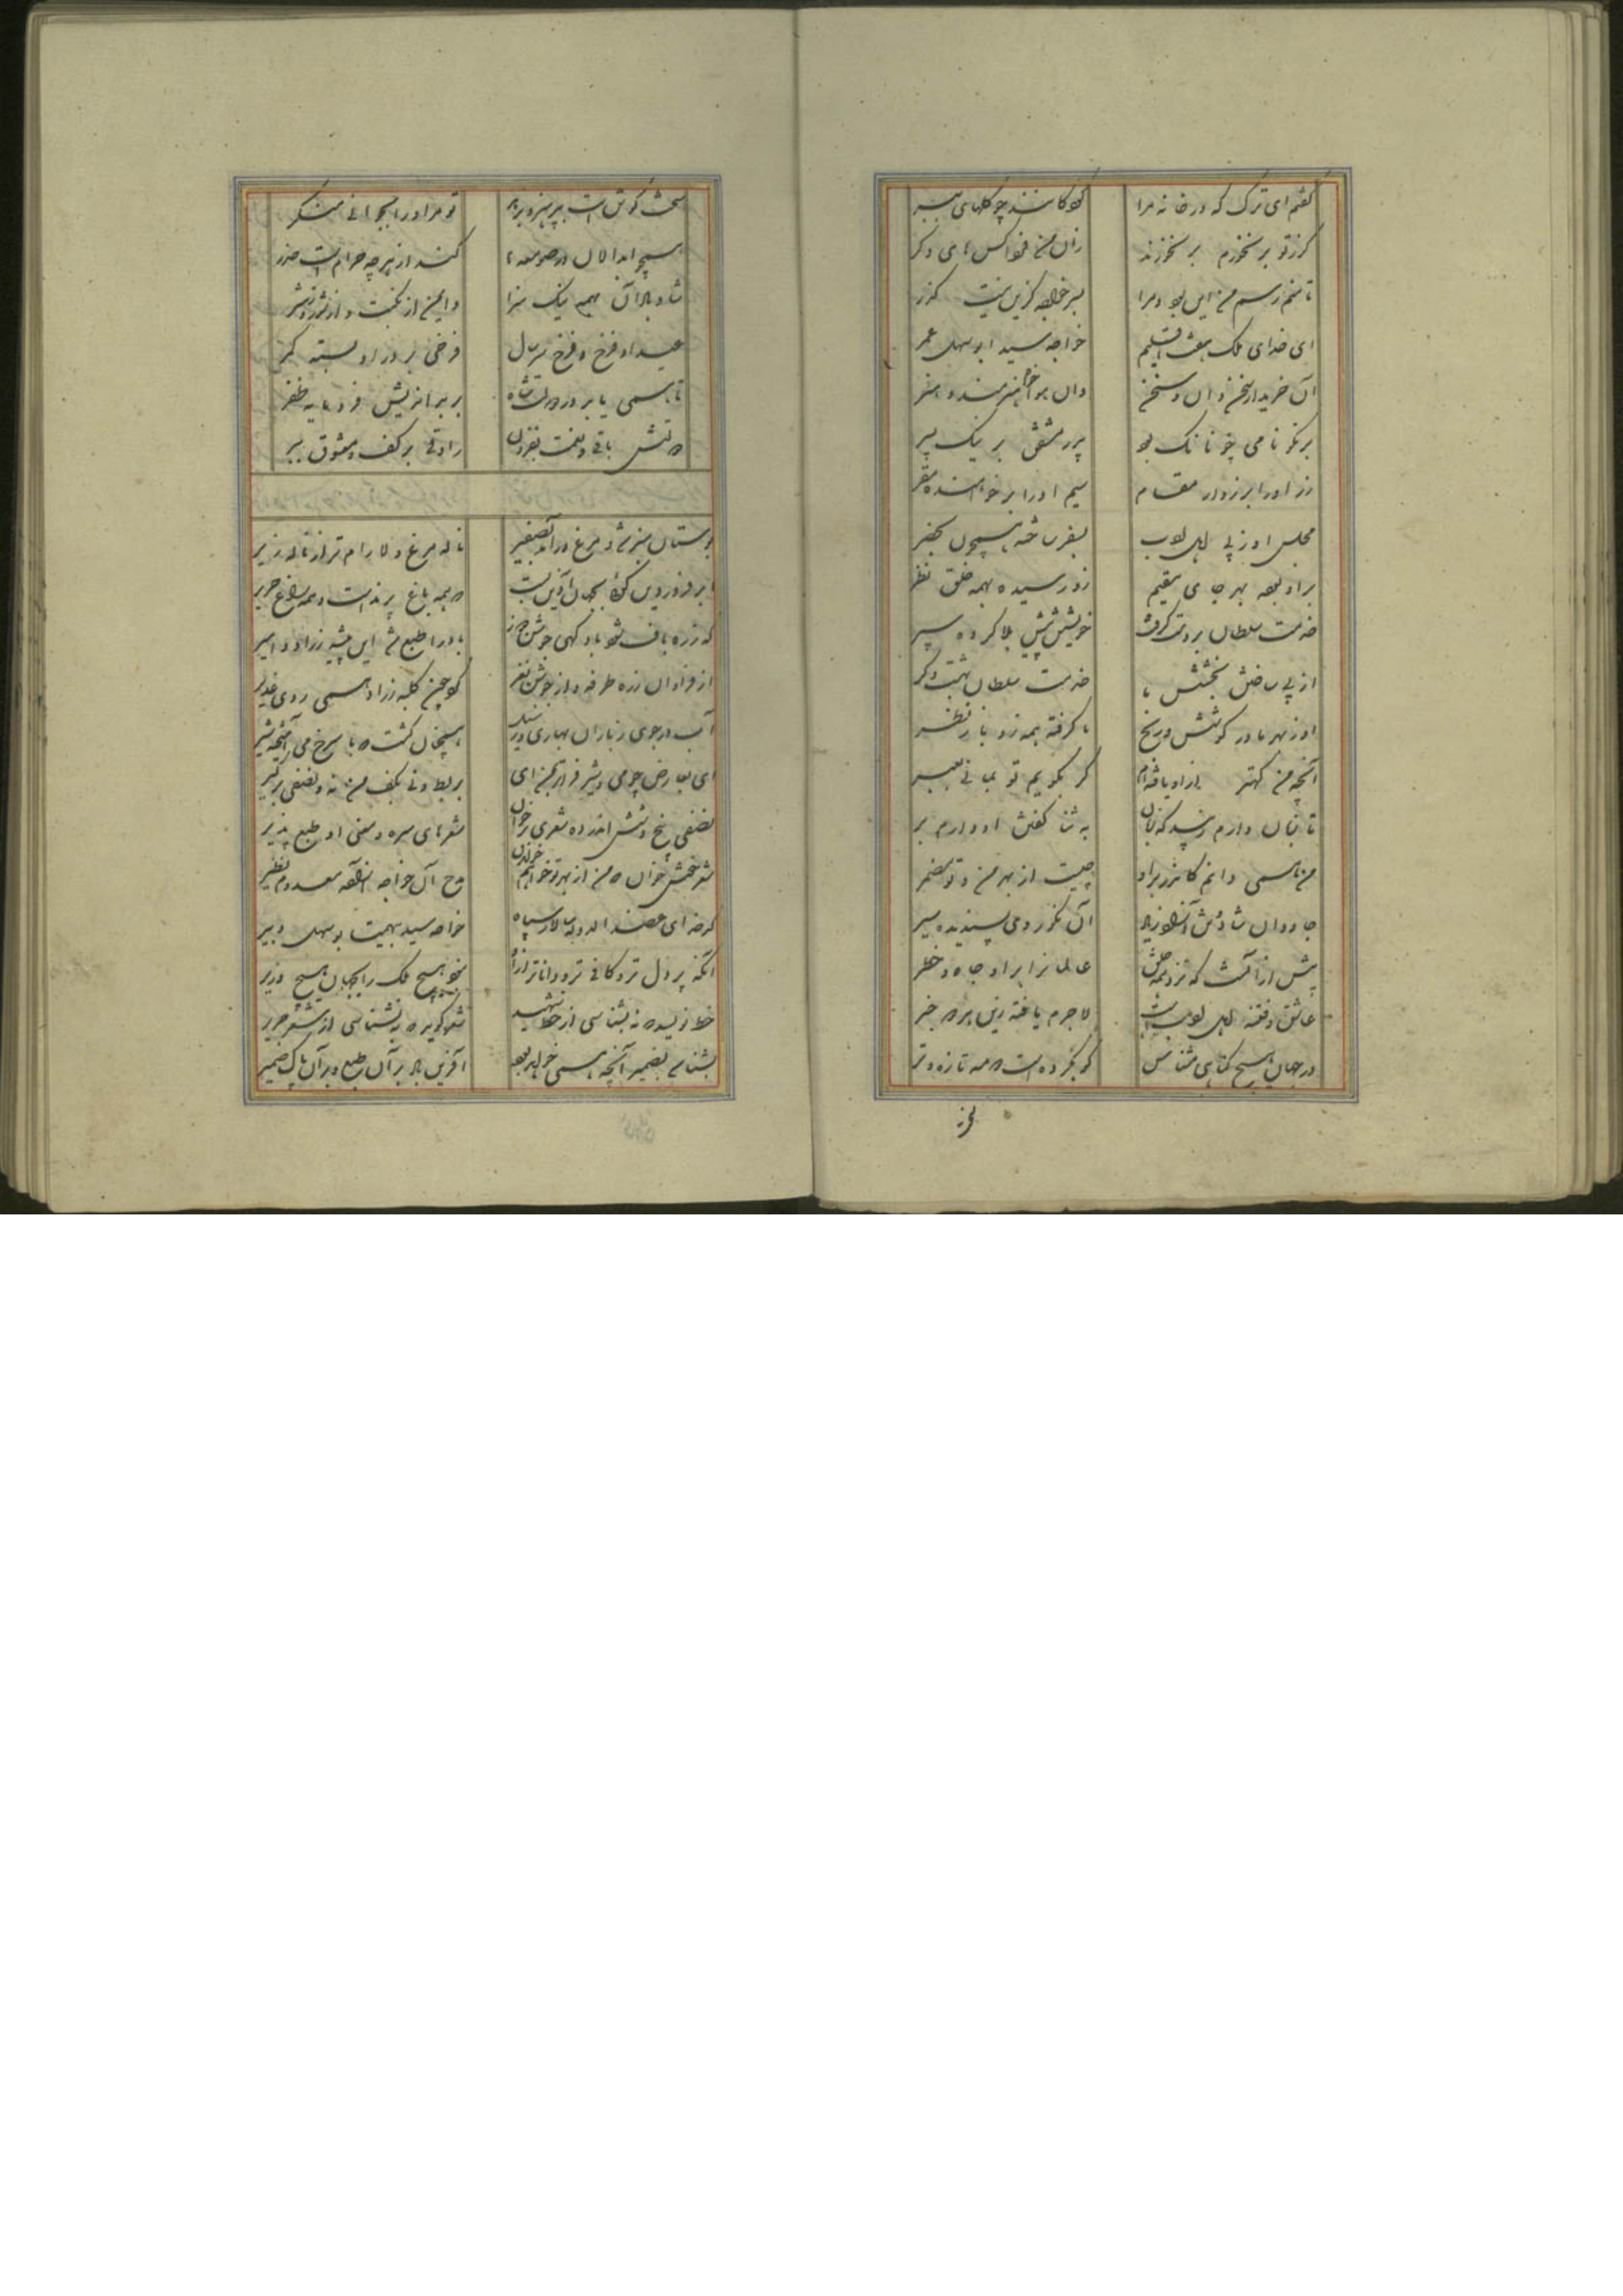 گفتم ای ترک که در خانه مرا
کودکانند چو گلهای ببر
گر ز تو بر نخورم بر نخورند
زان من فردا کس های دگر
تا منم رسم من این بود مرا
خواجه سید ابوسهل عمر
آن خریدار سخندان و سخن
وان هنرمند و هنر
بر نکو نامی چونانک بود
پدر مشفق بر یک پسر
زر او را بر زوار مقام
سیم او را بر خواهنده مقر
مجلس او ز پی اهل ادب
بسفر ساخته همچون بحضر
بر او بوده بهر جای مقیم
زو رسیده بهمه خلق نظر
خدمت سلطان بر دست گرفت
خویشتن پیش بلا کرده سپر
از پی ساختن بخشش ما
خدمت سلطان دگر
او ز بهر ما در کوشش و رنج
ما گرفته همه زو ناز و بطر
آنچه من کهتر ازو یافته‌ام
گر بگویم تو بمانی بعبر
تا زبان دارم زیبد که زبان
به ثنا گفتن او دارم تر
من همی دانم کاندر بر او
چیست از بهر من و تو مضمر
جاودان شاد و تن آسان زیاد
آن نکو روی پسندیده سیر
بیش از آنست که نزد همه خلق
عالمان را بر او جاه و خطر
عاشق و فتنه اهل ادبست
لاجرم یافته زین هر دو خبر
در جهان هیچ کتابی مشناس
کو نکردست دو سه تازه و تر
نحو
سخت کوش است بپرهیز و بزهد
تو مر او را بجوانی منگر
همچو ابدالان در صومعه ها
کند از هر چه حرام است حذر
شاد باد آن بهمه نیک سزا
وایمن از نکبت و از شور و ز شر
عید او فرخ و فرخ سر سال
فرخی بر در او بسته کمر
تا همی یابد در دولت شاه
بر بداندیش فرومایه ظفر
دولتش باقی و نعمت بفزون
راوقی بر کف و معشوق ببر
بوستان سبز شد و مرغ در آمد بصفیر
ناله مرغ دلارام تر از ناله زیر
ابر فروردین گوئی بجهان آذین بست
که همه باغ پرندست و همه راغ حریر
گه زره باف شود باد و گهی جوشن دوز
باد را طبع شد این پیشه ز زاد و اسیر
از فراوان زره طرفه و از جوشن نغز
کو چمن کلبه زراد همی روی غدیر
آب در جوی ز باران بهاری
همچنان گشت که با سرخ می آمیخته شیر
ای بعارض چو می و شیر فراز آی
بربط و نی بکف من نه و نصفی برگیر
نصفی پنج و شش اندر ده و شعری برخوان
شعرهای سره و معنی او طبع پذیر
شعر خوش خوان که من از بهر تو خواهم خواندن
مدح آن خواجه آزاده معدوم نظیر
کدخدای عضدالدوله سالار سپاه
خواجه سید بهمت بوسهل دبیر
آنکه پر دل تر و کافی تر و داناتر ازو
نبود هیچ ملک را بجهان هیچ وزیر
خط نویسد که بنشناسی از خط شهید
شعر گوید که بنشناسی از شعر جریر
بشناسد بضمیر آنچه همی خواهد بود
آفرین باد بر آن طبع و بر آن پاک ضمیر